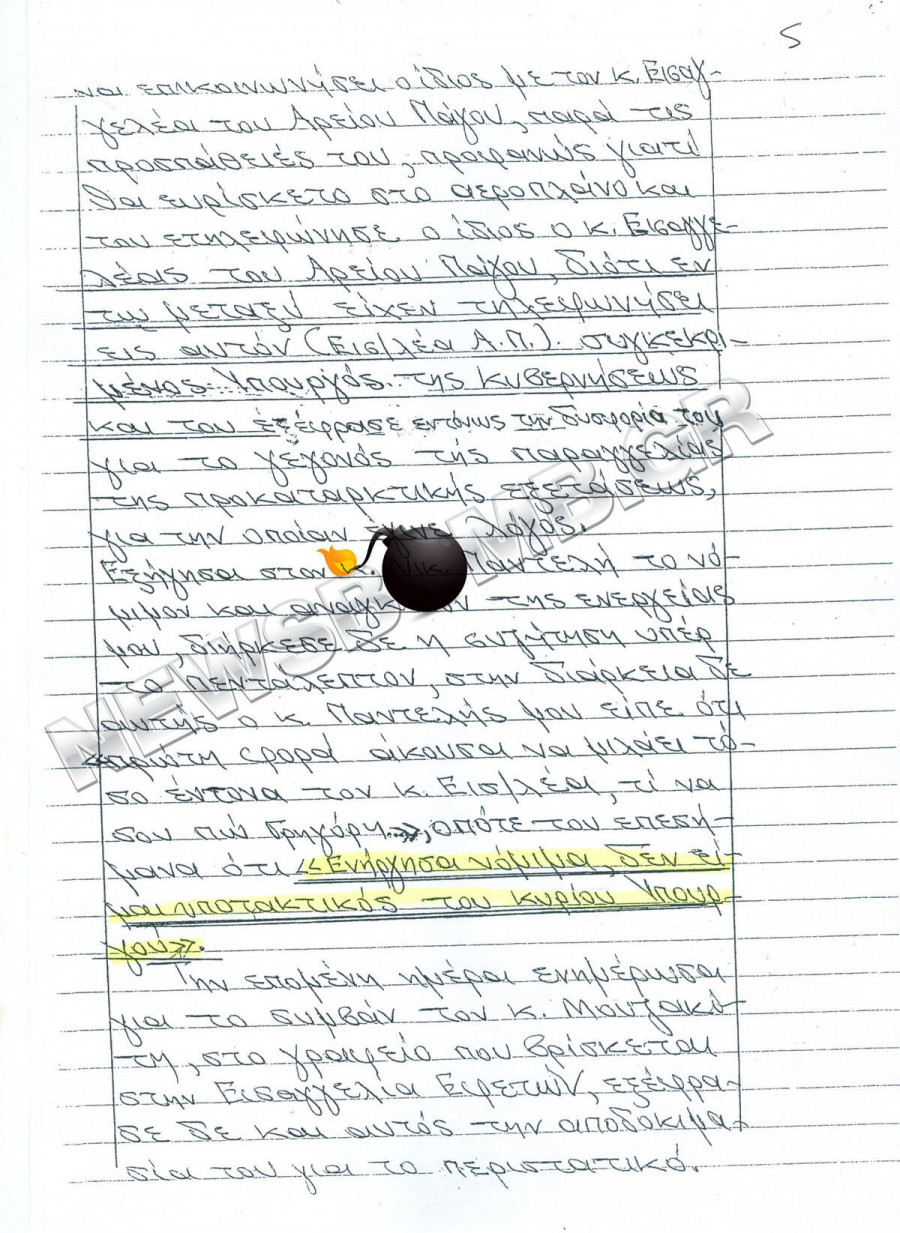 5
να επικοινωνήσει ο ίδιος με τον κ. Εισαγ-
γελέα του Αρείου Πάγου, παρά τις
προσπάθειές του, προφανώς γιατί
θα ευρίσκετο στο αεροπλάνο και
του ετηλεφώνησε ο ίδιος ο κ. Εισαγγε-
λέας του Αρείου Πάγου, διότι εν
τω μεταξύ είχεν τηλεφωνήσει
εις αυτόν (Εισ/λέα Α.Π.) συγκεκρι-
μένος Υπουργός της Κυβερνήσεως
και του εξέφρασε εντόνως την δυσφορία του
για το γεγονός της παραγγελίας
της προκαταρκτικής εξετάσεως,
για την οποίαν έγινε λόγος.
Εξήγησα στον κ. Νικ. Παντελή το νό-
μιμον και αναγκαίον της ενεργείας
μου, διήρκεσε δε η συζήτηση υπέρ
το πεντάλεπτον, στην διάρκεια δε
αυτής ο κ. Παντελής μου είπε ότι
«πρώτη φορά άκουσα να μιλάει τό-
σο έντονα τον κ. Εισ/λέα, τί να
σου πώ Γρηγόρη...», οπότε του επεσή-
μανα ότι «Ενήργησα νόμιμα, δεν εί-
μαι υποτακτικός του κυρίου Υπουρ-
γού».
Την επομένη ημέρα ενημέρωσα
για το συμβάν τον κ. Μουζακί-
τη, στο γραφείο που βρίσκεται
στην Εισαγγελία Εφετών, εξέφρα-
σε δε και αυτός την αποδοκιμα-
σία του για το περιστατικό.
NEWSBOMB.GR